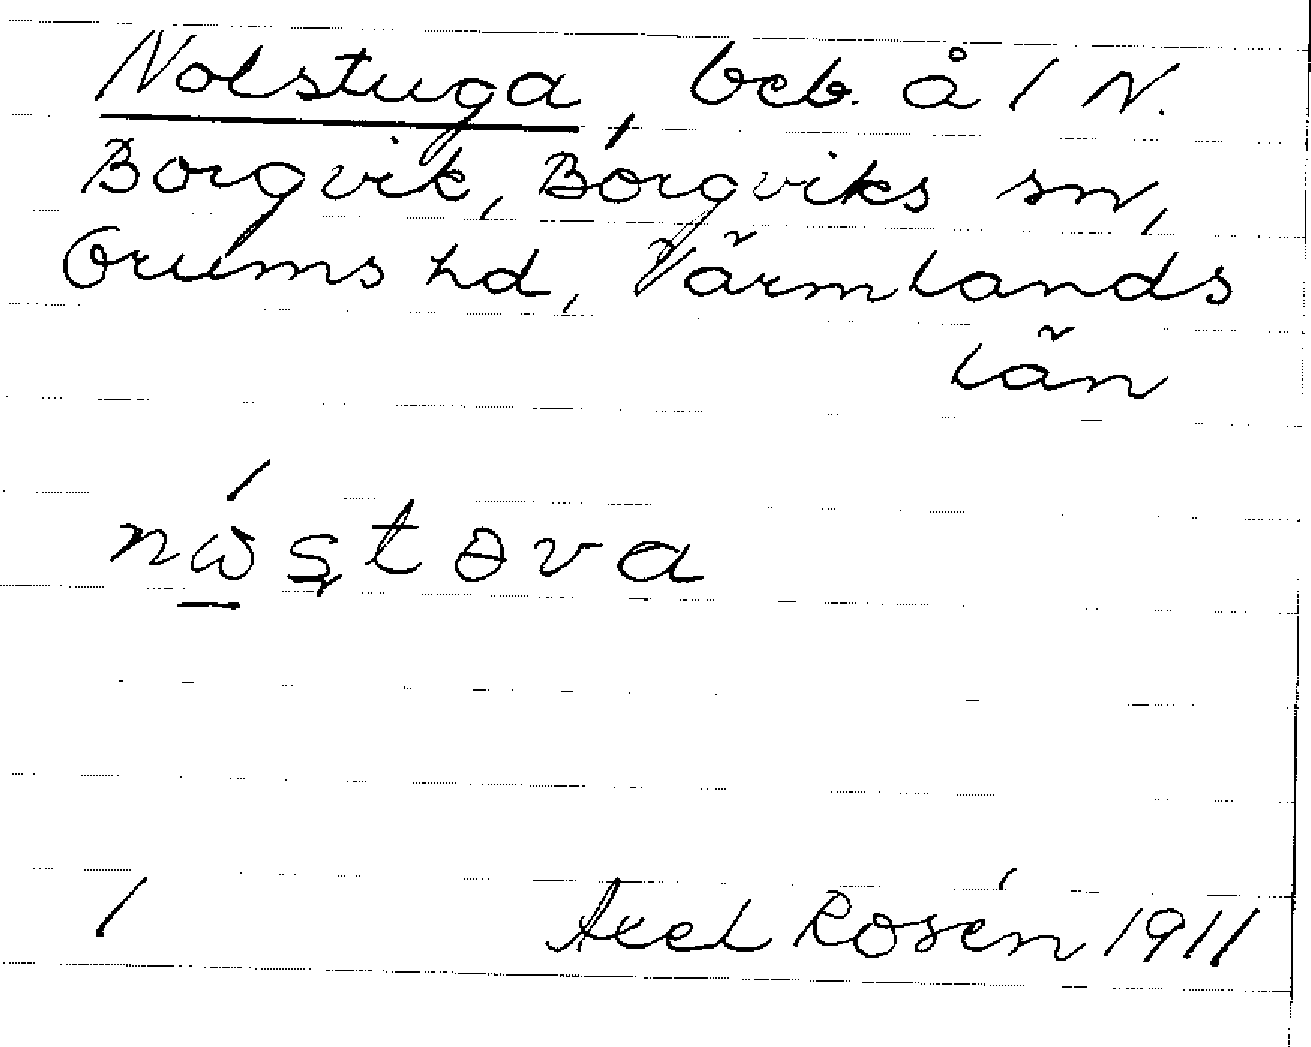 Nolstuga, beb. å 1 N.
Borgvik, Borgviks sn,
Grums hd, Värmlands
län
1 Axel Rosén 1911